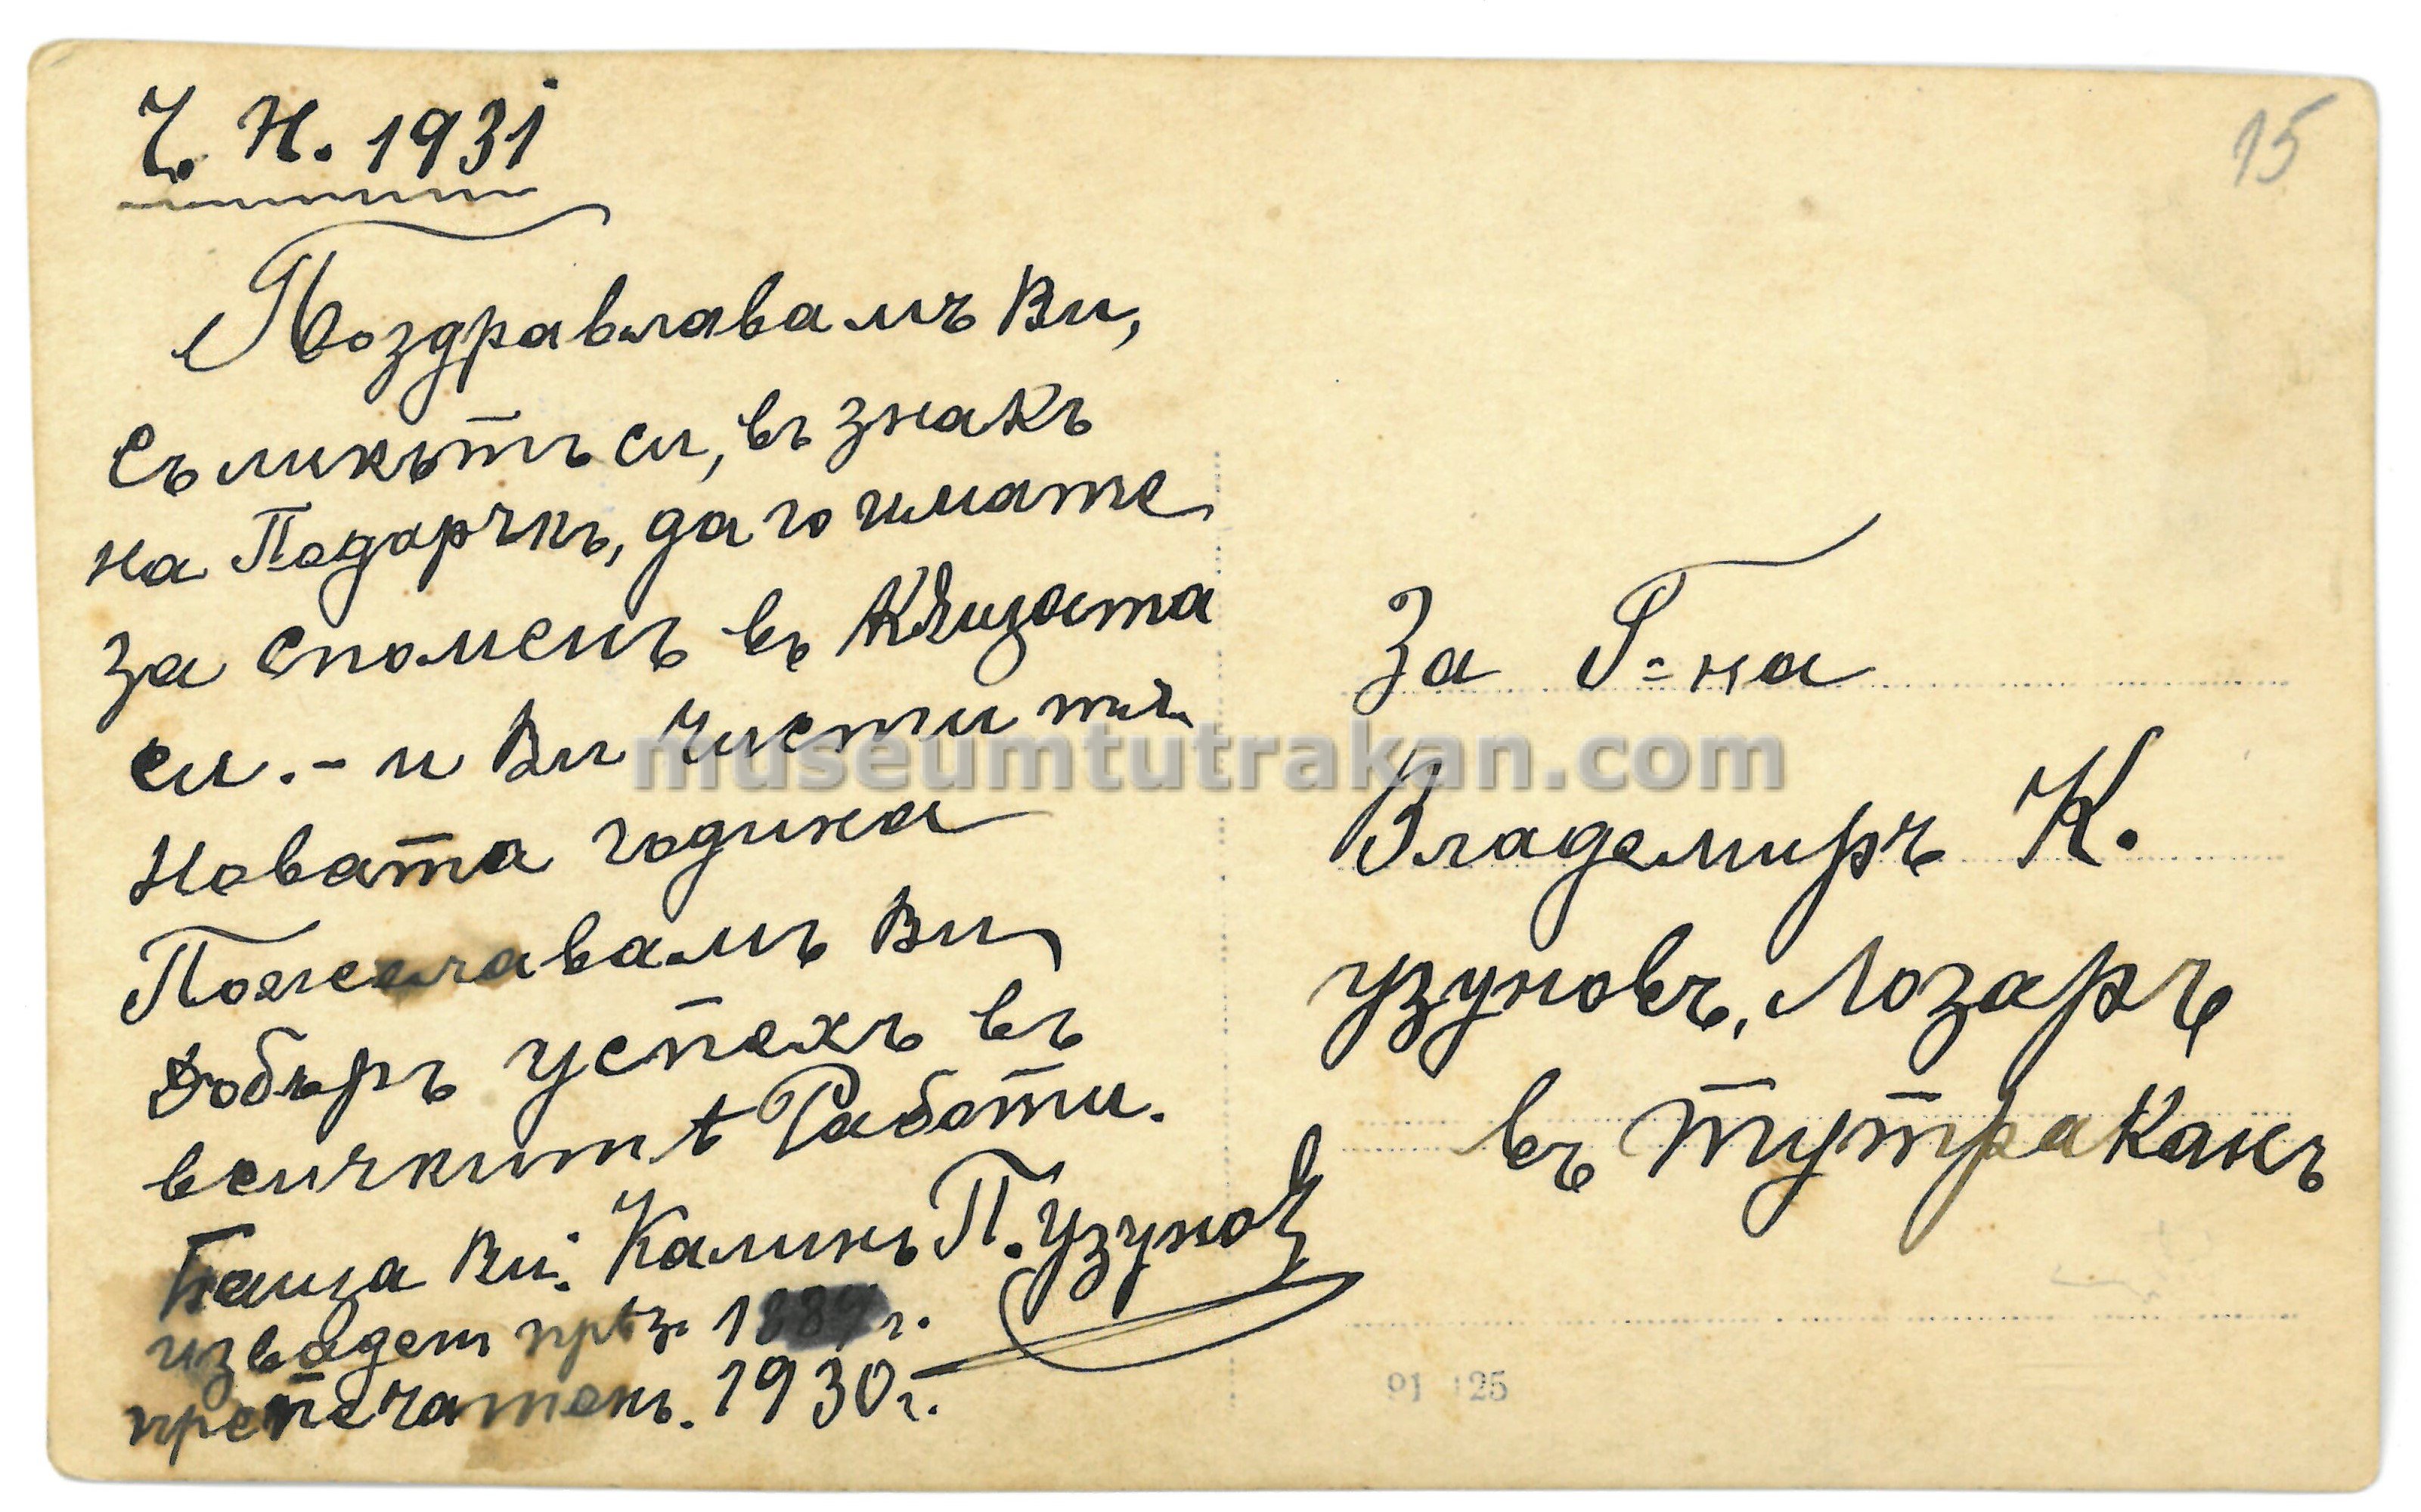 Ч. Н. 1931
15
Поздравлавамъ Ви,
съ ликътъ си, въ знакъ
на Подаръкъ, да го имате
за споменъ въ Кѫщата
си. - и Ви Честитя
Новата година
Пожелавамъ Ви
добъръ успехъ въ
всичкитѣ Работи.
Баща Ви: Калинъ П. Узуновъ
изваден прѣз 1889 г.
препечатенъ. 1930 г.
За Г=на
Владемиръ К.
Узуновъ, Лозаръ
въ Тутраканъ
museumtutrakan.com
91 125